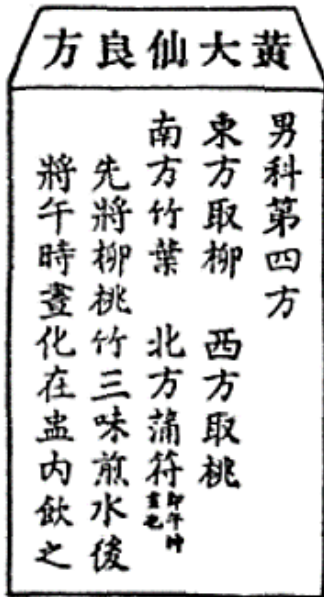 黃大仙良方
男科第四方
東方取柳　西方取桃
南方竹葉　北方蒲符即午時書也
先將柳桃竹三味煎水後
將午時書化在盅內飲之